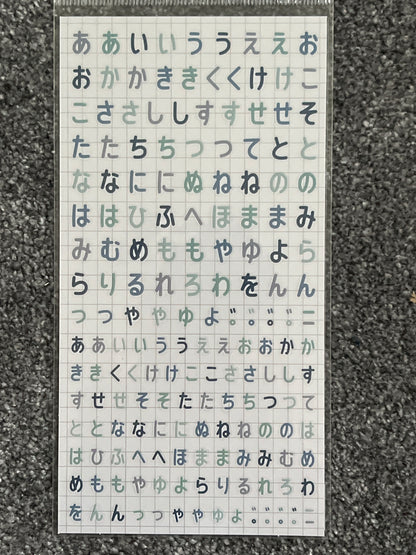 ああいいううええお
おかかききくくけけこ
こささししすすせせそ
たたちちつつてとと
ななににぬねねのの
ははひふへほままみ
みむめももやゆよら
らりるれろわをんん
っっゃゃゅょ゛゜゛゜ー
ああいいううええおおかか
ききくくけけここささししす
すせせそそたたちちつつて
ととなななににぬねねののは
はひふへへほままみみむめ
めももやゆよらりるれろわ
をんんっっゃゃゅょ゛゜゛゜ー